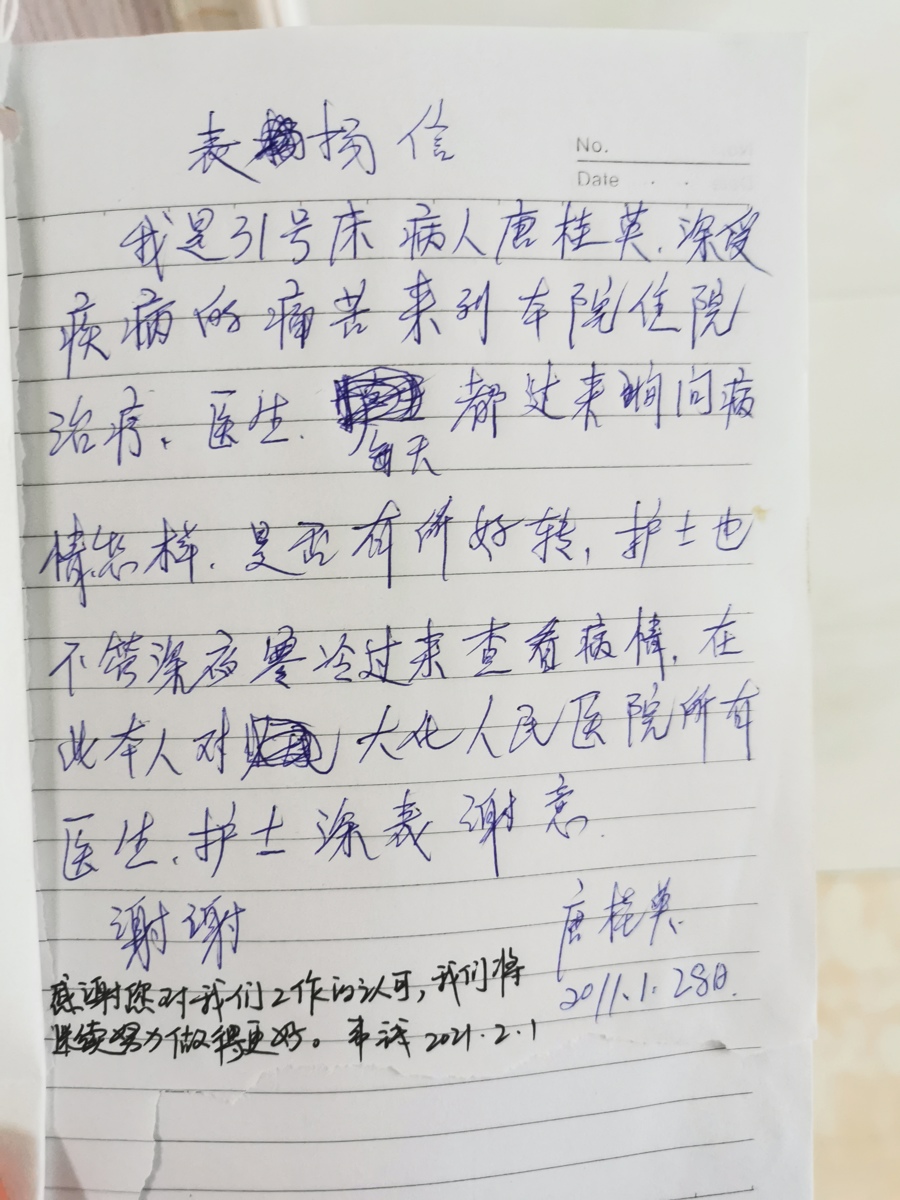 表扬信
No.
Date
我是31号床病人唐桂英.深受
疾病的痛苦来到本院住院
治疗。医生.每天都过来询问病
情怎样.是否有所好转,护士也
不管深夜寒冷过来查看病情,在
此本人对大化人民医院所有
医生.护士深表谢意.
谢谢
唐桂英.
2011.1.28日.
感谢您对我们工作的认可,我们将
继续努力做得更好。韦 2021.2.1